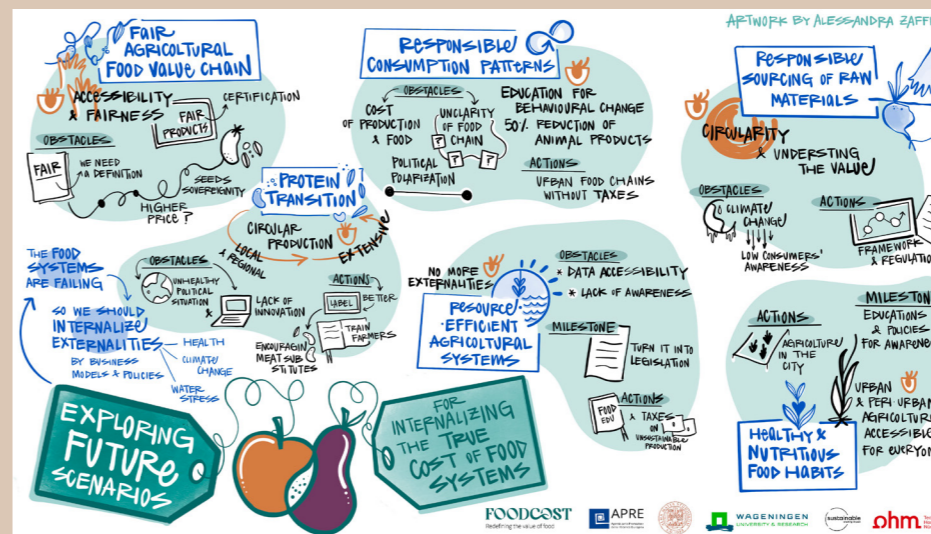 ARTWORK BY ALESSANDRA
FAIR
AGRICULTURAL
FOOD VALUE CHAIN
ACCESSIBILITY
& FAIRNESS
CERTIFICATION
FAIR
PRODUCTS
OBSTACLES
FAIR
WE NEED
A DEFINITION
SEEDS
SOVEREIGNITY
HIGHER
PRICE?
RESPONSIBLE
CONSUMPTION PATTERNS
OBSTACLES
COST
OF PRODUCTION
& FOOD
UNCLARITY
OF FOOD
CHAIN
? ? ?
POLITICAL
POLARIZATION
EDUCATION FOR
BEHAVIOURAL CHANGE
50% REDUCTION OF
ANIMAL PRODUCTS
ACTIONS
URBAN FOOD CHAINS
WITHOUT TAXES
RESPONSIBLE
SOURCING OF RAW
MATERIALS
CIRCULARITY
& UNDERSTING
THE VALUE
OBSTACLES
CLIMATE
CHANGE
LOW CONSUMERS'
AWARENESS
ACTIONS
FRAMEWORK
& REGULATION
PROTEIN
TRANSITION
CIRCULAR
PRODUCTION
LOCAL
& REGIONAL
EXTENSIVE
OBSTACLES
UNHEALTHY
POLITICAL
SITUATION
&
LACK OF
INNOVATION
ACTIONS
LABEL
BETTER
TRAIN
FARMERS
ENCOURAGIN
MEAT SUB
STITUTES
THE FOOD
SYSTEMS
ARE FAILING
SO WE SHOULD
INTERNALIZE
EXTERNALITIES
BY BUSINESS
MODELS & POLICIES
HEALTH
CLIMATE
CHANGE
WATER
STRESS
NO MORE
EXTERNALITIES
RESOURCE
·EFFICIENT
AGRICULTURAL
SYSTEMS
OBSTACLES
* DATA ACCESSIBILITY
* LACK OF AWARENESS
MILESTONE
TURN IT INTO
LEGISLATION
ACTIONS
FOOD
EDU
& TAXES
ON
UNSUSTAINABLE
PRODUCTION
ACTIONS
AGRICULTURE
IN THE
CITY
EDUCATIONS
& POLICIES
FOR
URBAN
& PERI URBAN
AGRICULTURE
ACCESSIBLE
FOR
HEALTHY &
NUTRITIOUS
FOOD HABITS
EXPLORING
FUTURE
SCENARIOS
FOR
INTERNALIZING
THE TRUE
COST OF FOOD
SYSTEMS
FOODCOST
Redefining the value of food
APRE
WAGENINGEN
UNIVERSITY & RESEARCH
sustainable
ohm